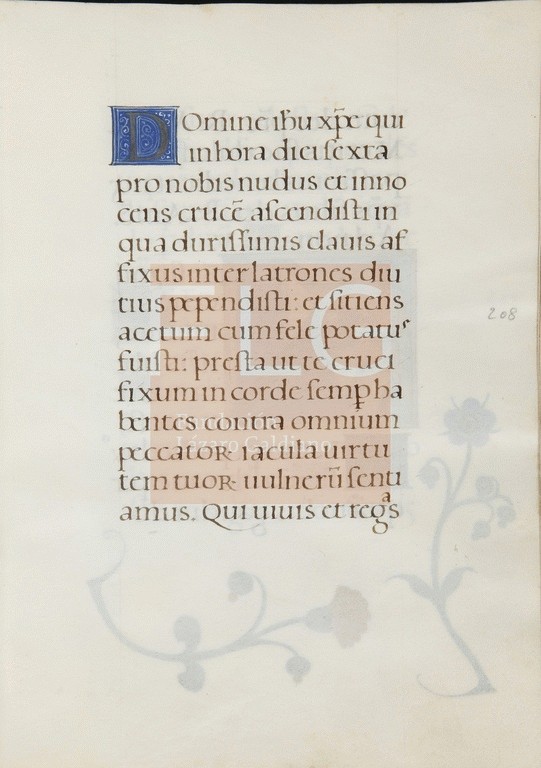 DOmine ihu xp̄e qui
in hora diei sexta
pro nobis nudus et inno
cens crucē ascendisti in
qua durissimis clauis af
fixus inter latrones diu
tius pependisti: et sitiens
acetum cum fele potatus
fuisti: presta ut te cruci
fixum in corde semꝑ ha
bentes contra omnium
peccatoꝝ iacula uirtu
tem tuoꝝ uulnerū senti
amus. Qui uiuis et regᵃs
208
FLG
Fundación
Lázaro Galdiano